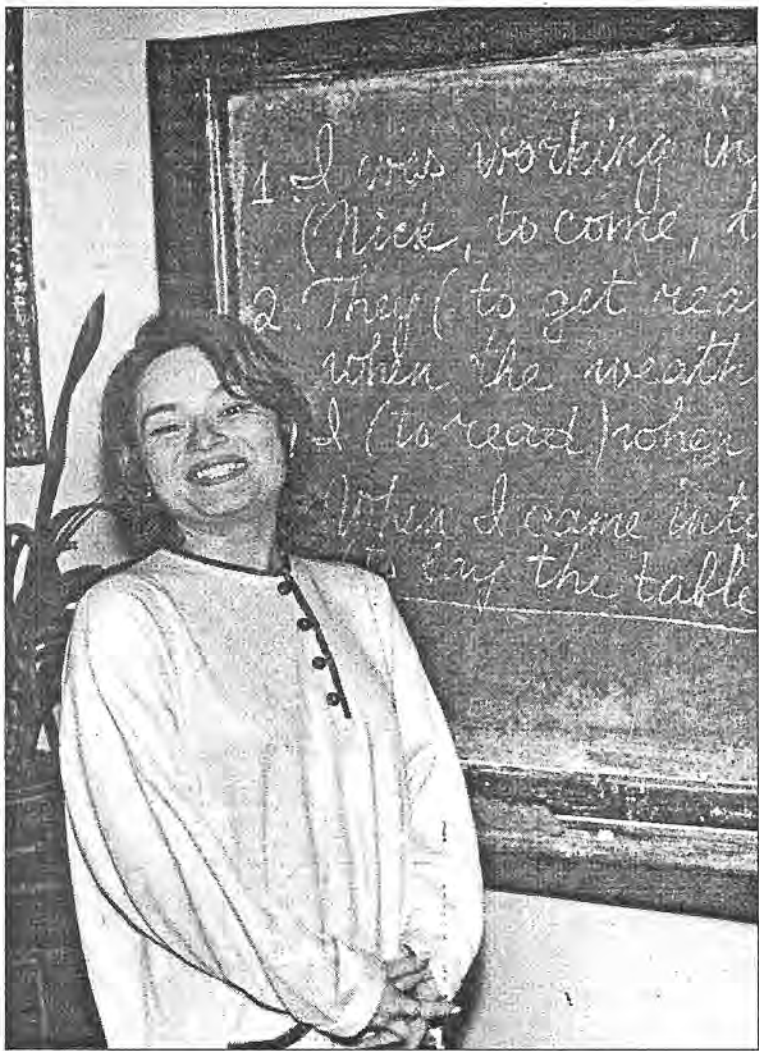 1. I was working in
(Nick, to come, t
2. They (to get rea
when the weath
I (to read) when
When I came into
to lay the table